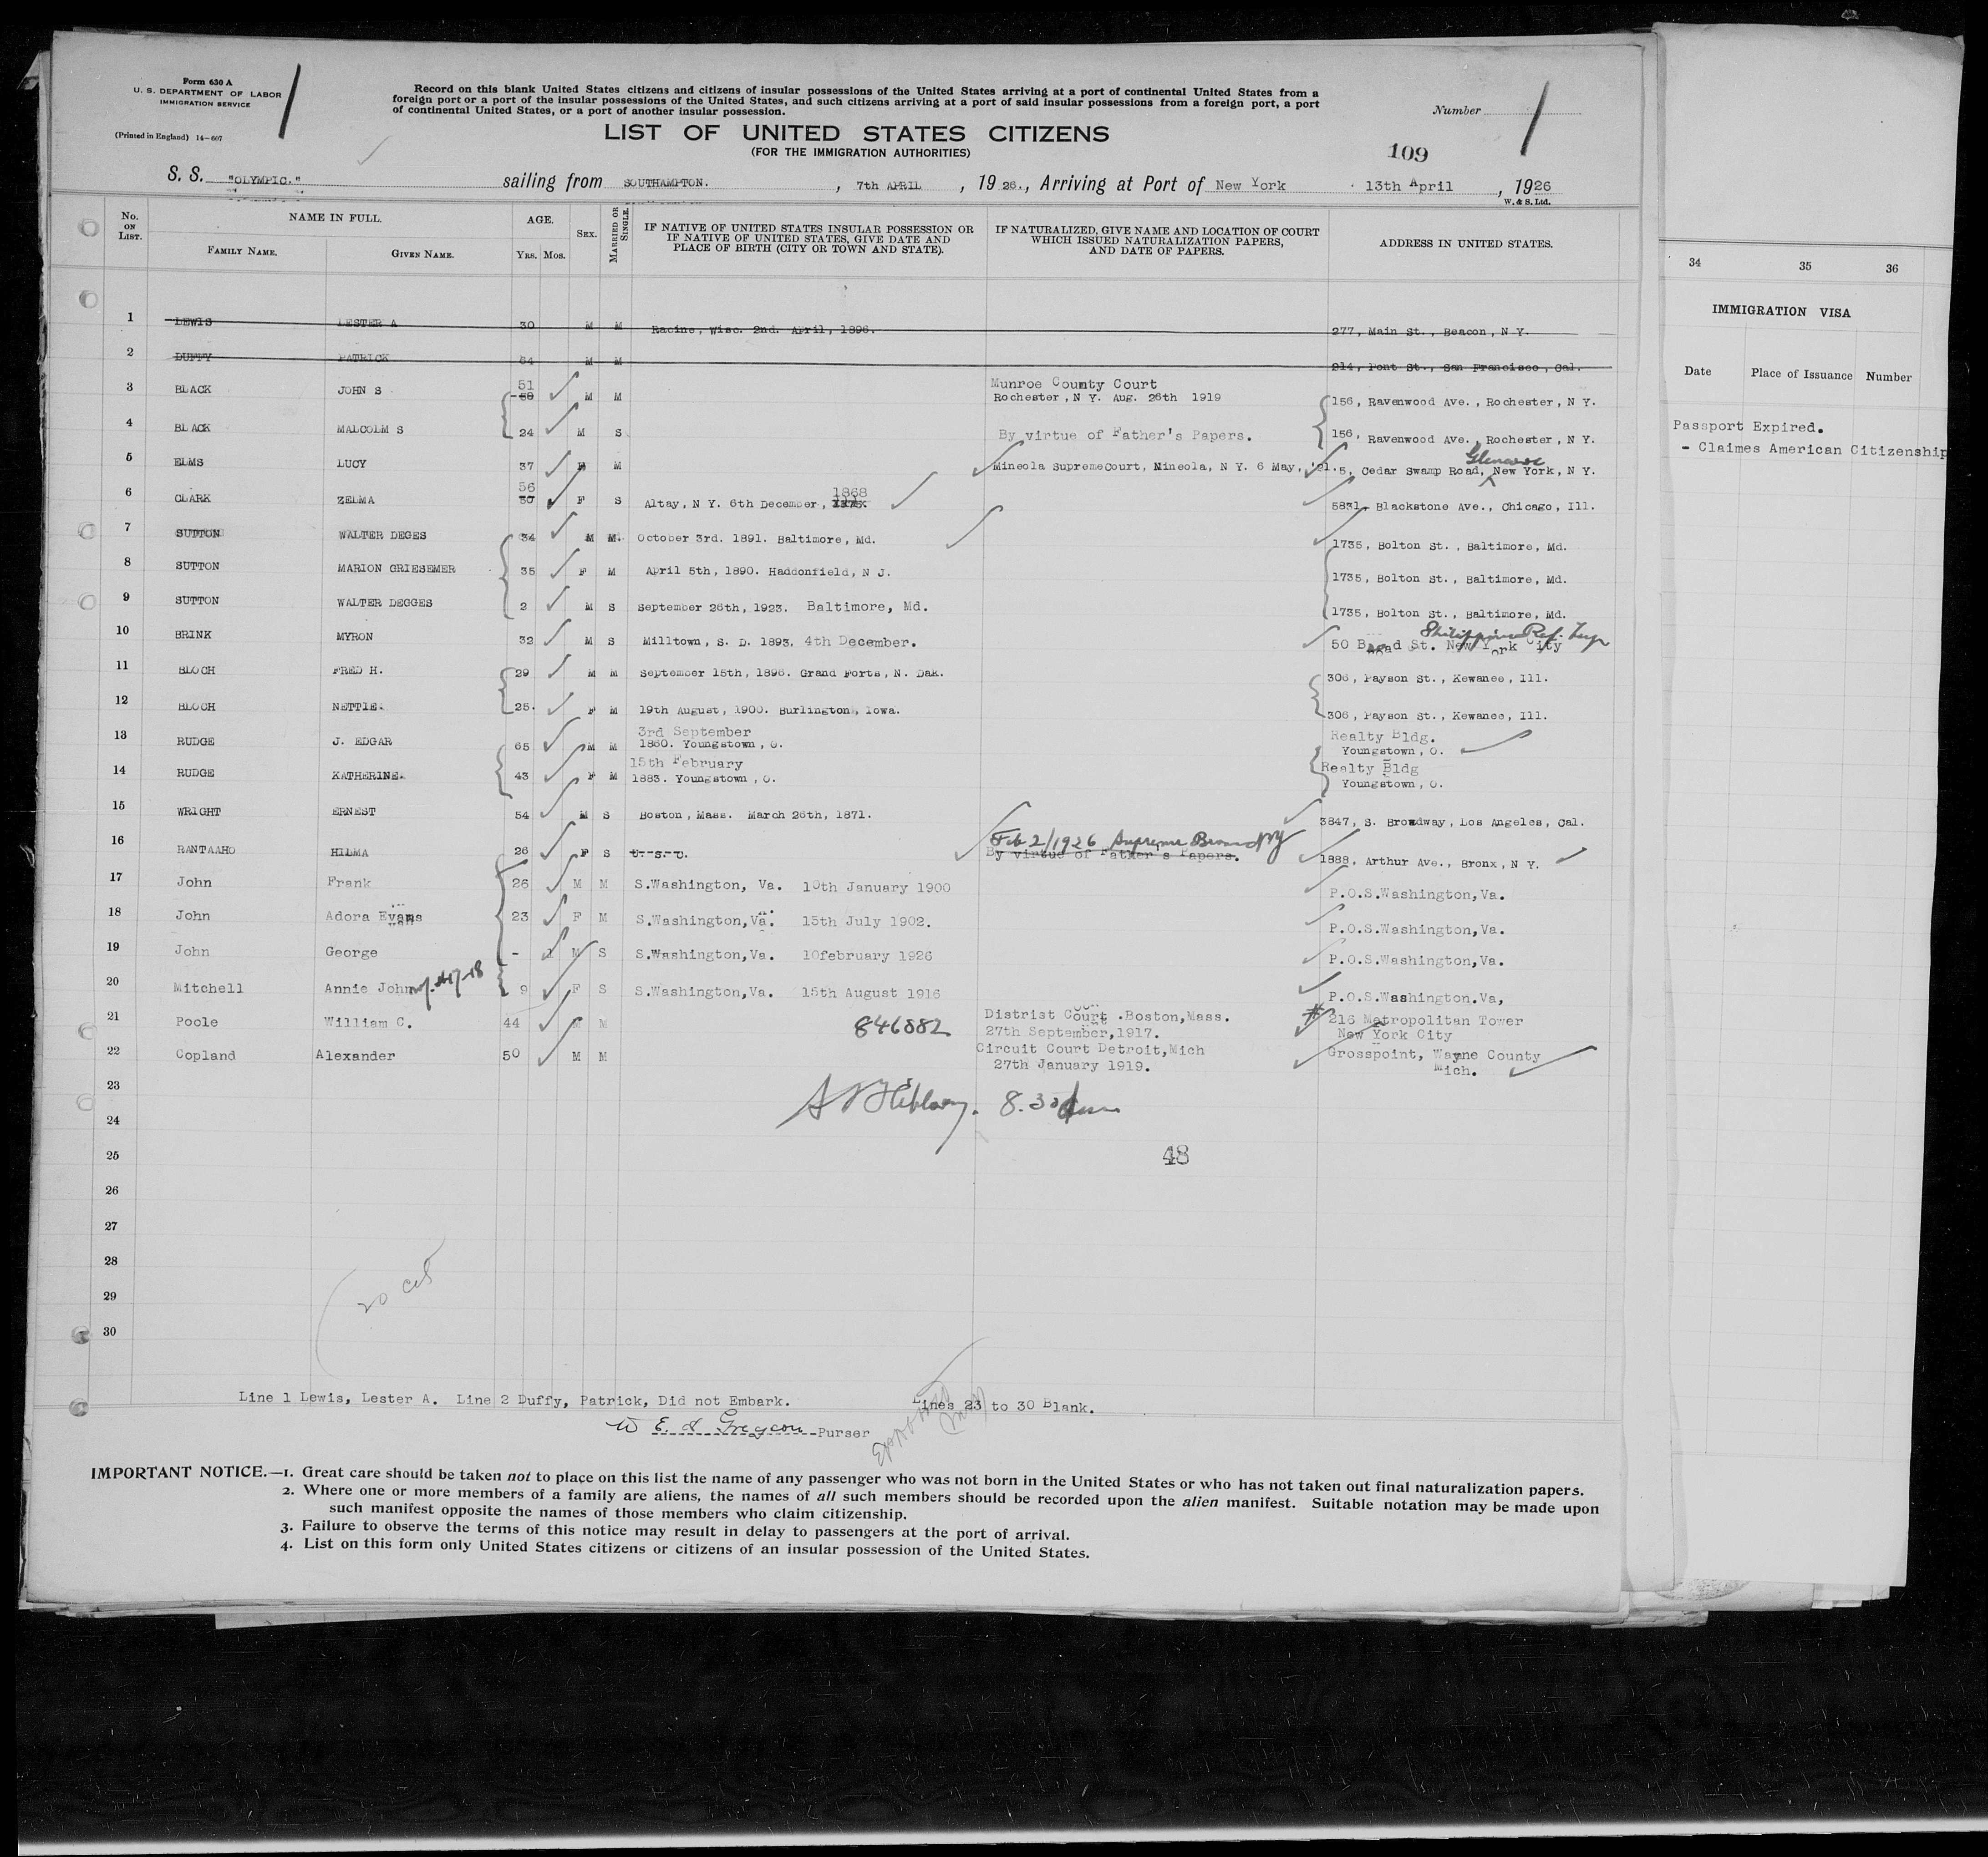 Form 630 A
U. S. DEPARTMENT OF LABOR
IMMIGRATION SERVICE
(Printed in England) 14-607
Record on this blank United States citizens and citizens of insular possessions of the United States arriving at a port of continental United States from a
foreign port or a port of the insular possessions of the United States, and such citizens arriving at a port of said insular possessions from a foreign port, a port
of continental United States, or a port of another insular possession.
Number
LIST OF UNITED STATES CITIZENS
(FOR THE IMMIGRATION AUTHORITIES)
109
S. S. "OLYMPIC." sailing from SOUTHAMPTON. , 7th APRIL , 19 26., Arriving at Port of New York 13th April , 1926
W. & S. Ltd.
No. ON LIST. NAME IN FULL. FAMILY NAME. GIVEN NAME. AGE. YRS. MOS. SEX. MARRIED OR SINGLE. IF NATIVE OF UNITED STATES INSULAR POSSESSION OR IF NATIVE OF UNITED STATES, GIVE DATE AND PLACE OF BIRTH (CITY OR TOWN AND STATE). IF NATURALIZED, GIVE NAME AND LOCATION OF COURT WHICH ISSUED NATURALIZATION PAPERS, AND DATE OF PAPERS. ADDRESS IN UNITED STATES.
1 LEWIS LESTER A 30 M M Racine, Wisc. 2nd. April, 1896. 277, Main St., Beacon, N Y.
2 DUFFY PATRICK 54 M M 214, Pont St., San Francisco, Cal.
3 BLACK JOHN S 51 50 M M Munroe County Court
Rochester, N Y. Aug. 26th 1919 156, Ravenwood Ave., Rochester, N Y.
4 BLACK MALCOLM S 24 M S By virtue of Father's Papers. 156, Ravenwood Ave., Rochester, N Y.
5 ELMS LUCY 37 F M Mineola SupremeCourt, Mineola, N Y. 6 May, '21. 5, Cedar Swamp Road, New York, N Y.
6 CLARK ZELMA 56 50 F S Altay, N Y. 6th December, 1868 5831- Blackstone Ave., Chicago, Ill.
7 SUTTON WALTER DEGES 34 M M. October 3rd. 1891. Baltimore, Md. 1735, Bolton St., Baltimore, Md.
8 SUTTON MARION GRIESEMER 35 F M April 5th, 1890. Haddonfield, N J. 1735, Bolton St., Baltimore, Md.
9 SUTTON WALTER DEGGES 2 M S September 26th, 1923. Baltimore, Md. 1735, Bolton St., Baltimore, Md.
10 BRINK MYRON 32 M S Milltown, S. D. 1893. 4th December. 50 Broad St. New York City
11 BLOCH FRED H. 29 M M September 15th, 1896. Grand Forts, N. Dak. 306, Payson St., Kewanee, Ill.
12 BLOCH NETTIE. 25. F M 19th August, 1900. Burlington, Iowa. 306, Payson St., Kewanee, Ill.
13 RUDGE J. EDGAR 65 M M 3rd September
1860. Youngstown, O. Realty Bldg.
Youngstown, O.
14 RUDGE KATHERINE. 43 F M 15th February
1883. Youngstown, O. Realty Bldg
Youngstown, O.
15 WRIGHT ERNEST 54 M S Boston, Mass. March 26th, 1871. 3847, S. Browdway, Los Angeles, Cal.
16 RANTAAHO HILMA 26 F S Feb 2/1926 Supreme Bronx NY
By virtue of Father's Papers. 1888, Arthur Ave., Bronx, N Y.
17 John Frank 26 M M S.Washington, Va. 10th January 1900 P.O.S.Washington,Va.
18 John Adora Evans 23 F M S.Washington,Va. 15th July 1902. P.O.S.Washington,Va.
19 John George - 1 M S S.Washington,Va. 10february 1926 P.O.S.Washington,Va.
20 Mitchell Annie John 9 F S S.Washington,Va. 15th August 1916 P.O.S.Washington.Va,
21 Poole William C. 44 M M 846882 District Court .Boston,Mass.
27th September,1917. 216 Metropolitan Tower
New York City
22 Copland Alexander 50 M M Circuit Court Detroit,Mich
27th January 1919. Grosspoint, Wayne County
Mich.
23
24
25 48
26
27
28
29
30
Line 1 Lewis, Lester A. Line 2 Duffy, Patrick, Did not Embark. Lines 23 to 30 Blank.
Purser
IMPORTANT NOTICE.—1. Great care should be taken not to place on this list the name of any passenger who was not born in the United States or who has not taken out final naturalization papers.
2. Where one or more members of a family are aliens, the names of all such members should be recorded upon the alien manifest. Suitable notation may be made upon
such manifest opposite the names of those members who claim citizenship.
3. Failure to observe the terms of this notice may result in delay to passengers at the port of arrival.
4. List on this form only United States citizens or citizens of an insular possession of the United States.
34 35 36
IMMIGRATION VISA
Date Place of Issuance Number
Passport Expired.
- Claimes American Citizenship